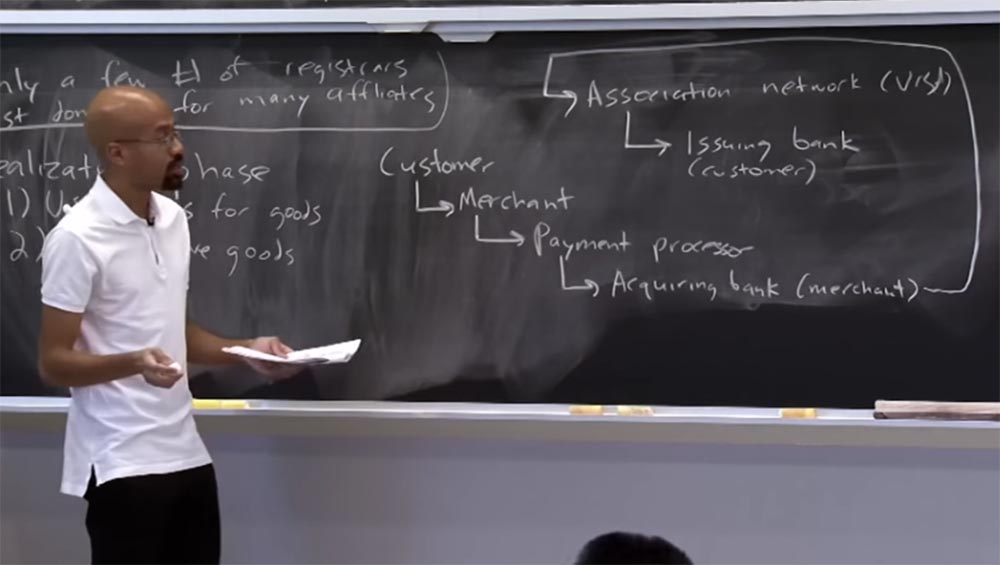 only a few # of registrars
for many affiliates
Realization phase
1) for goods
2) goods
Customer
Merchant
Payment processor
Acquiring bank (merchant)
Association network (Visa)
Issuing bank
(customer)